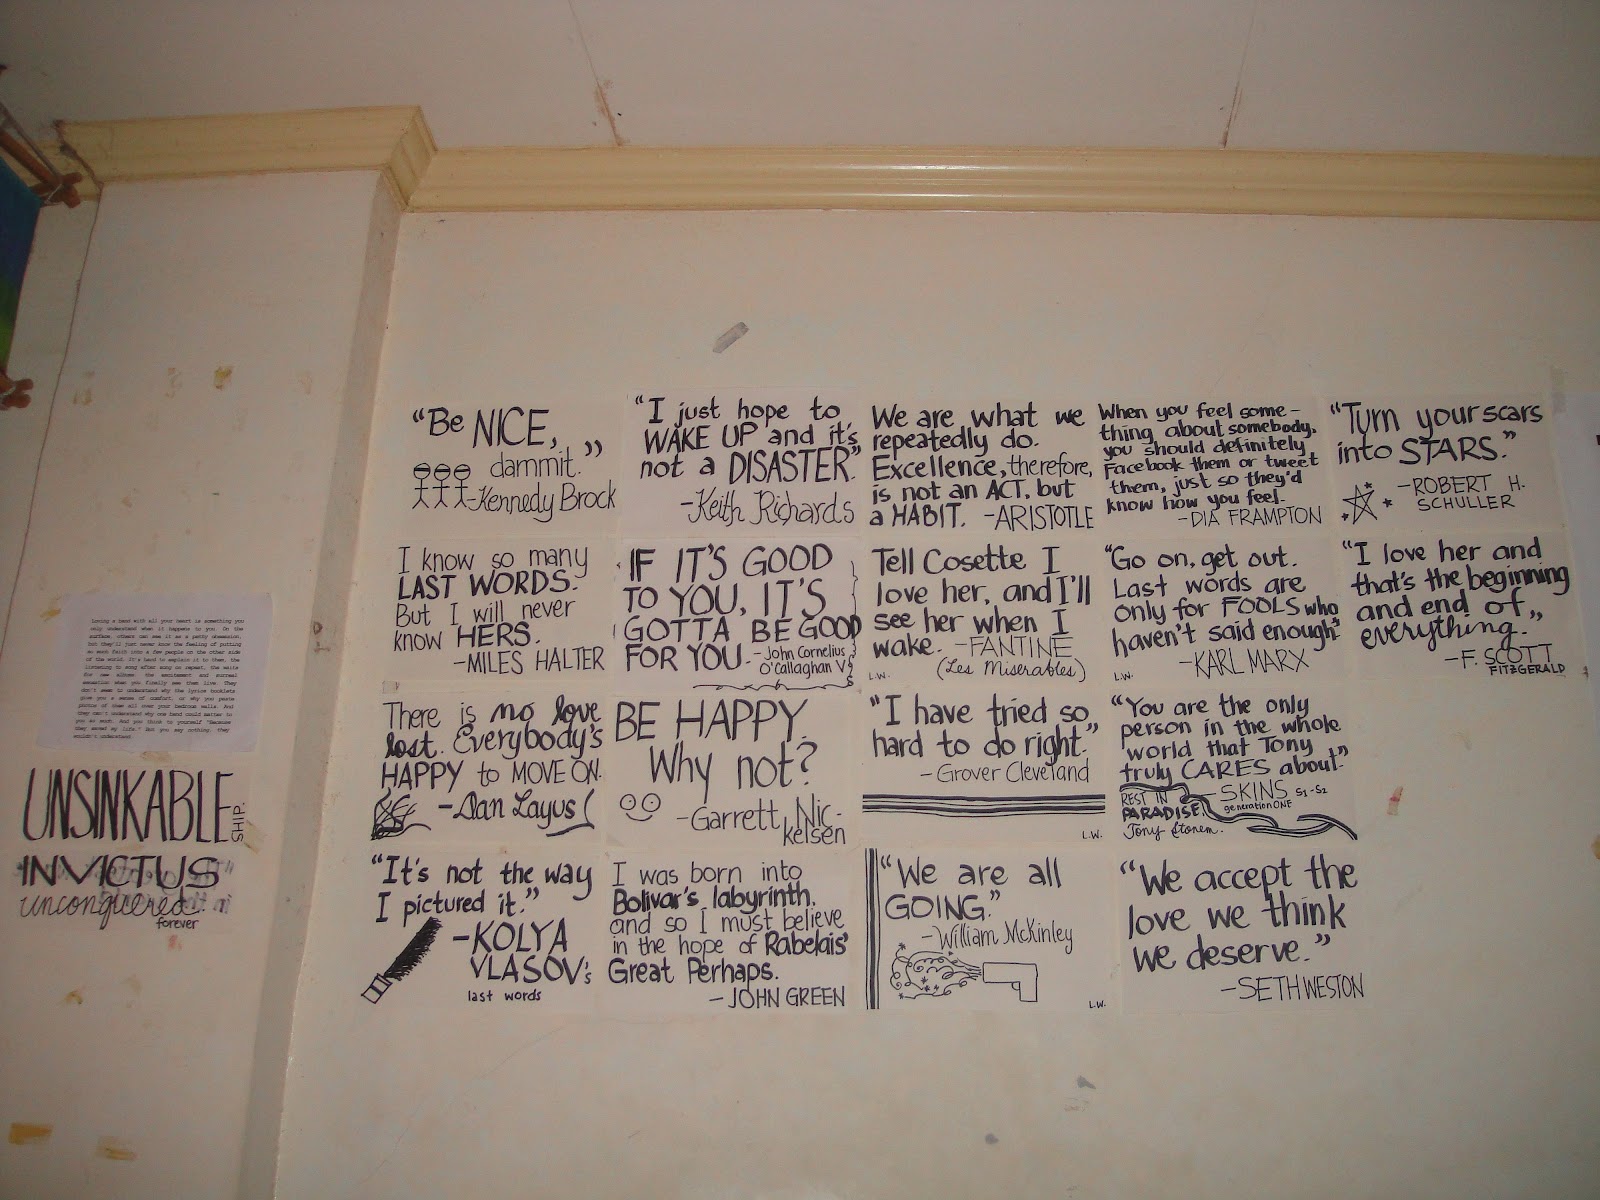 Loving a band with all your heart is something you
only understand when it happens to you. On the
surface, others can see it as a petty obsession,
but they'll just never know the feeling of putting
so much faith into a few people on the other side
of the world. It's hard to explain it to them, the
listening to song after song on repeat, the waits
for new albums the excitement and surreal
sensation when you finally see them live. They
don't seem to understand why the lyrics booklets
give you a sense of comfort, or why you paste
photos of them all over your bedroom walls. And
they can't understand why one band could matter to
you so much. And you think to yourself "Because
they saved my life." But you say nothing, they
wouldn't understand.
UNSINKABLE
SHIP.
INVICTUS
unconquered.
forever
"Be NICE,
dammit."
-Kennedy Brock
"I just hope to
WAKE UP and it's
not a DISASTER"
-Keith Richards
We are what we
repeatedly do.
Excellence, therefore,
is not an ACT, but
a HABIT. -ARISTOTLE
When you feel some-
thing about somebody,
you should definitely
Facebook them or tweet
them, just so they'd
know how you feel.
-DIA FRAMPTON
"Turn your scars
into STARS."
-ROBERT H.
SCHULLER
I know so many
LAST WORDS.
But I will never
know HERS.
-MILES HALTER
IF IT'S GOOD
TO YOU, IT'S
GOTTA BE GOOD
FOR YOU. -John Cornelius
O'Callaghan V
Tell Cosette I
love her, and I'll
see her when I
wake. -FANTINE
L.W. (Les Miserables)
"Go on, get out.
Last words are
only for FOOLS who
haven't said enough"
L.W. -KARL MARX
"I love her and
that's the beginning
and end of
everything."
-F. SCOTT
FITZGERALD
There is no love
lost. Everybody's
HAPPY to MOVE ON.
-Dan Layus
BE HAPPY.
Why not?
-Garrett Nic-
kelsen
"I have tried so
hard to do right."
-Grover Cleveland
L.W.
"You are the only
person in the whole
world that Tony
truly CARES about."
-SKINS S1-S2
generation ONE
REST IN
PARADISE,
Tony Stonem.
"It's not the way
I pictured it."
-KOLYA
VLASOV's
last words
I was born into
Bolivar's labyrinth,
and so I must believe
in the hope of Rabelais'
Great Perhaps.
-JOHN GREEN
"We are all
GOING."
-William McKinley
L.W.
"We accept the
love we think
we deserve."
-SETH WESTON